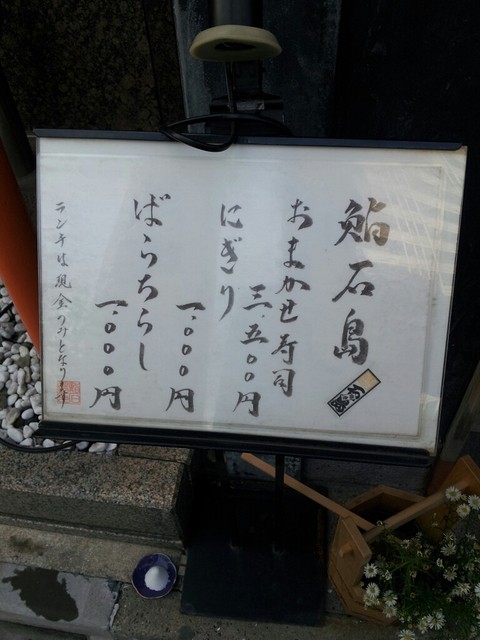 鮨石島
おまかせ寿司
三.五〇〇円
にぎり
一.〇〇〇円
ばらちらし
一.〇〇〇円
ランチは現金のみとなります